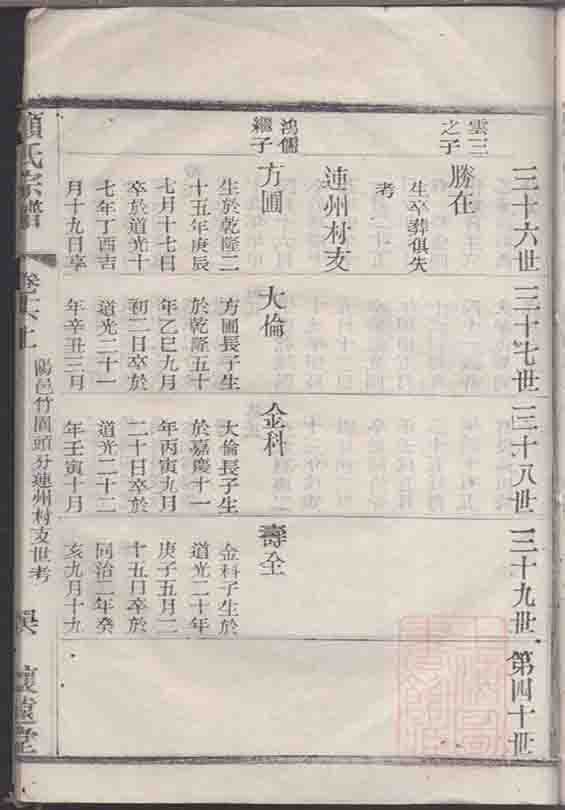 三十六世
三十七世
三十八世
三十九世
第四十世
雲三
之子
勝在
生卒葬俱失
考
連州村支
鴻儒
繼子
方圃
生於乾隆二
十五年庚辰
七月十七日
卒於道光十
七年丁酉吉
月十九日享
大倫
方圃長子生
於乾隆五十
年乙巳九月
初二日卒於
道光二十一
年辛丑三月
金科
大倫長子生
於嘉慶十一
年丙寅九月
二十日卒於
道光二十二
年壬寅十月
壽全
金科子生於
道光二十年
庚子五月二
十五日卒於
同治二年癸
亥九月十九
氏宗譜
陽邑竹園頭分連州村支世考
懷遠堂